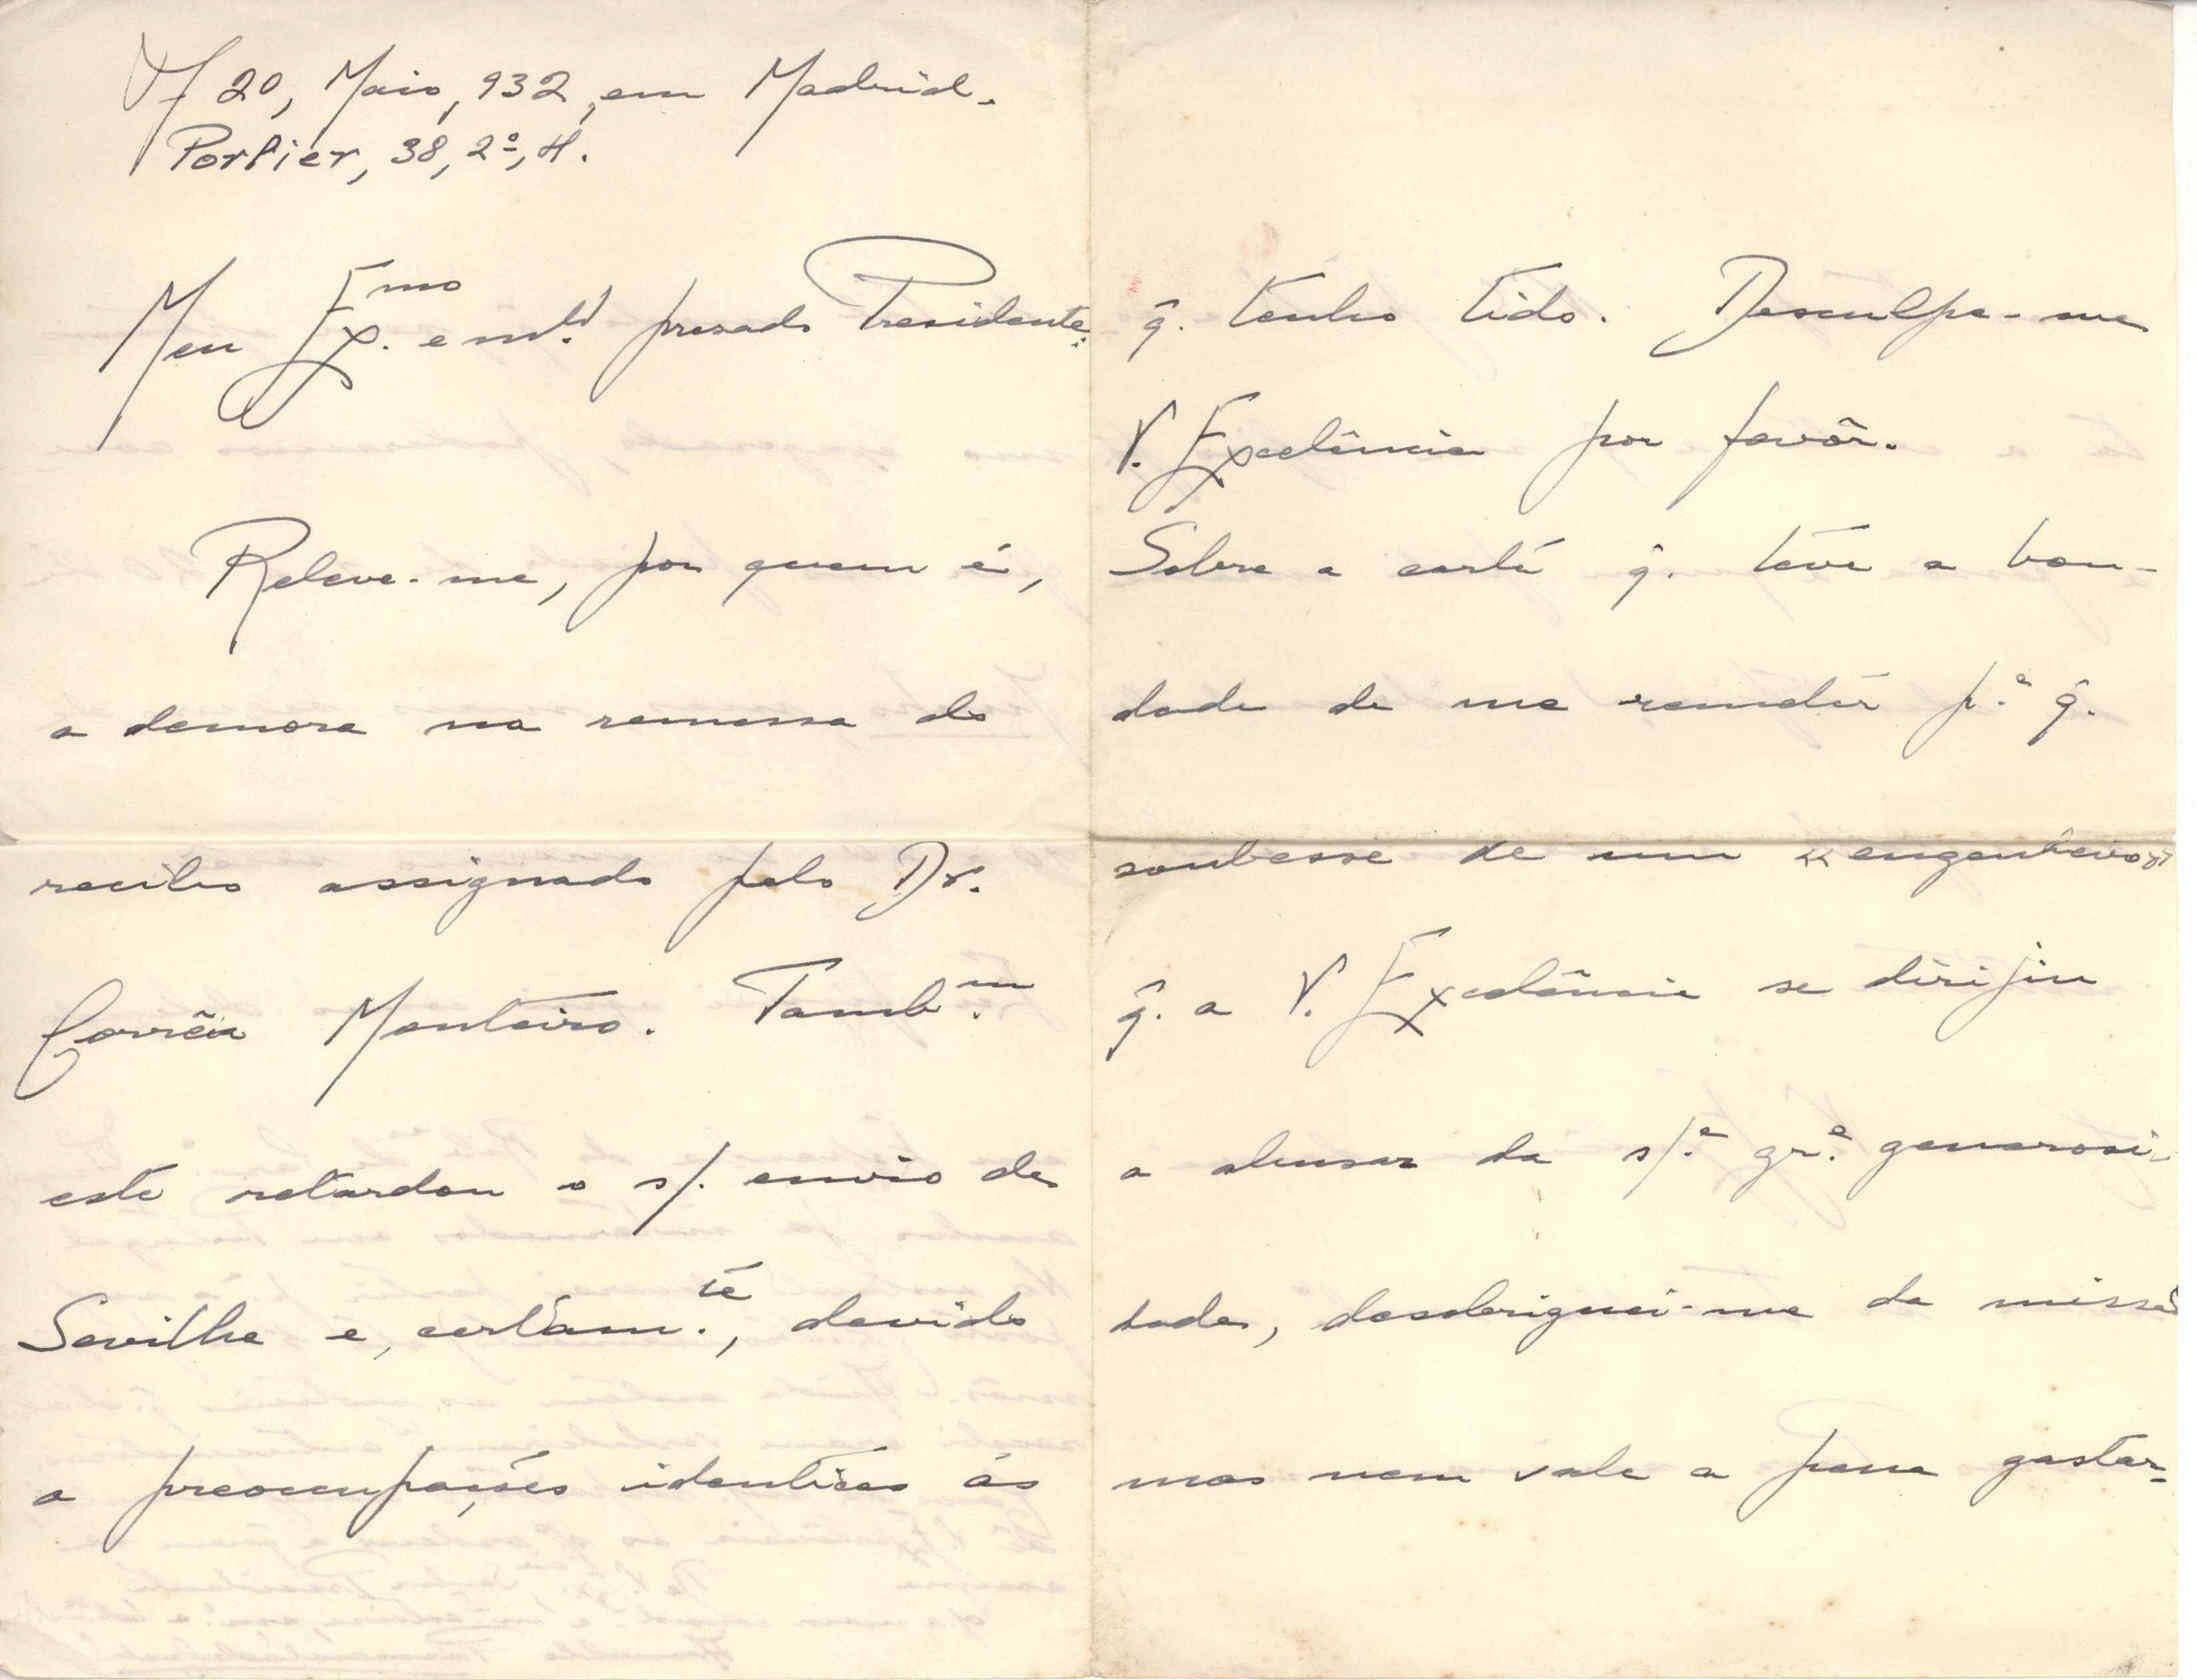 20, Maio, 932, em Madrid.
Porlier, 38, 2º, H.
Meu Ex.mo e m.to presado Presidente:
Releve-me, por quem é,
a demora na remessa do
recibo assignado pelo Dr.
Corrêia Monteiro. Tamb.m
este retardou o s/. envio de
Sevilha e, certam.te, devido
a preocupações identicas ás
q̂. tenho tido. Desculpe-me
V. Excelência por favôr.
Sobre a carta q̂. teve a bon-
dade de me remeter p.ª q̂.
soubesse de um «engenheiro»
q̂. a V. Excelência se dirijiu
a abusar da s/.ª gr.e generosi-
dade, desobriguei-me da missão
mas nem vale a pena gastar-